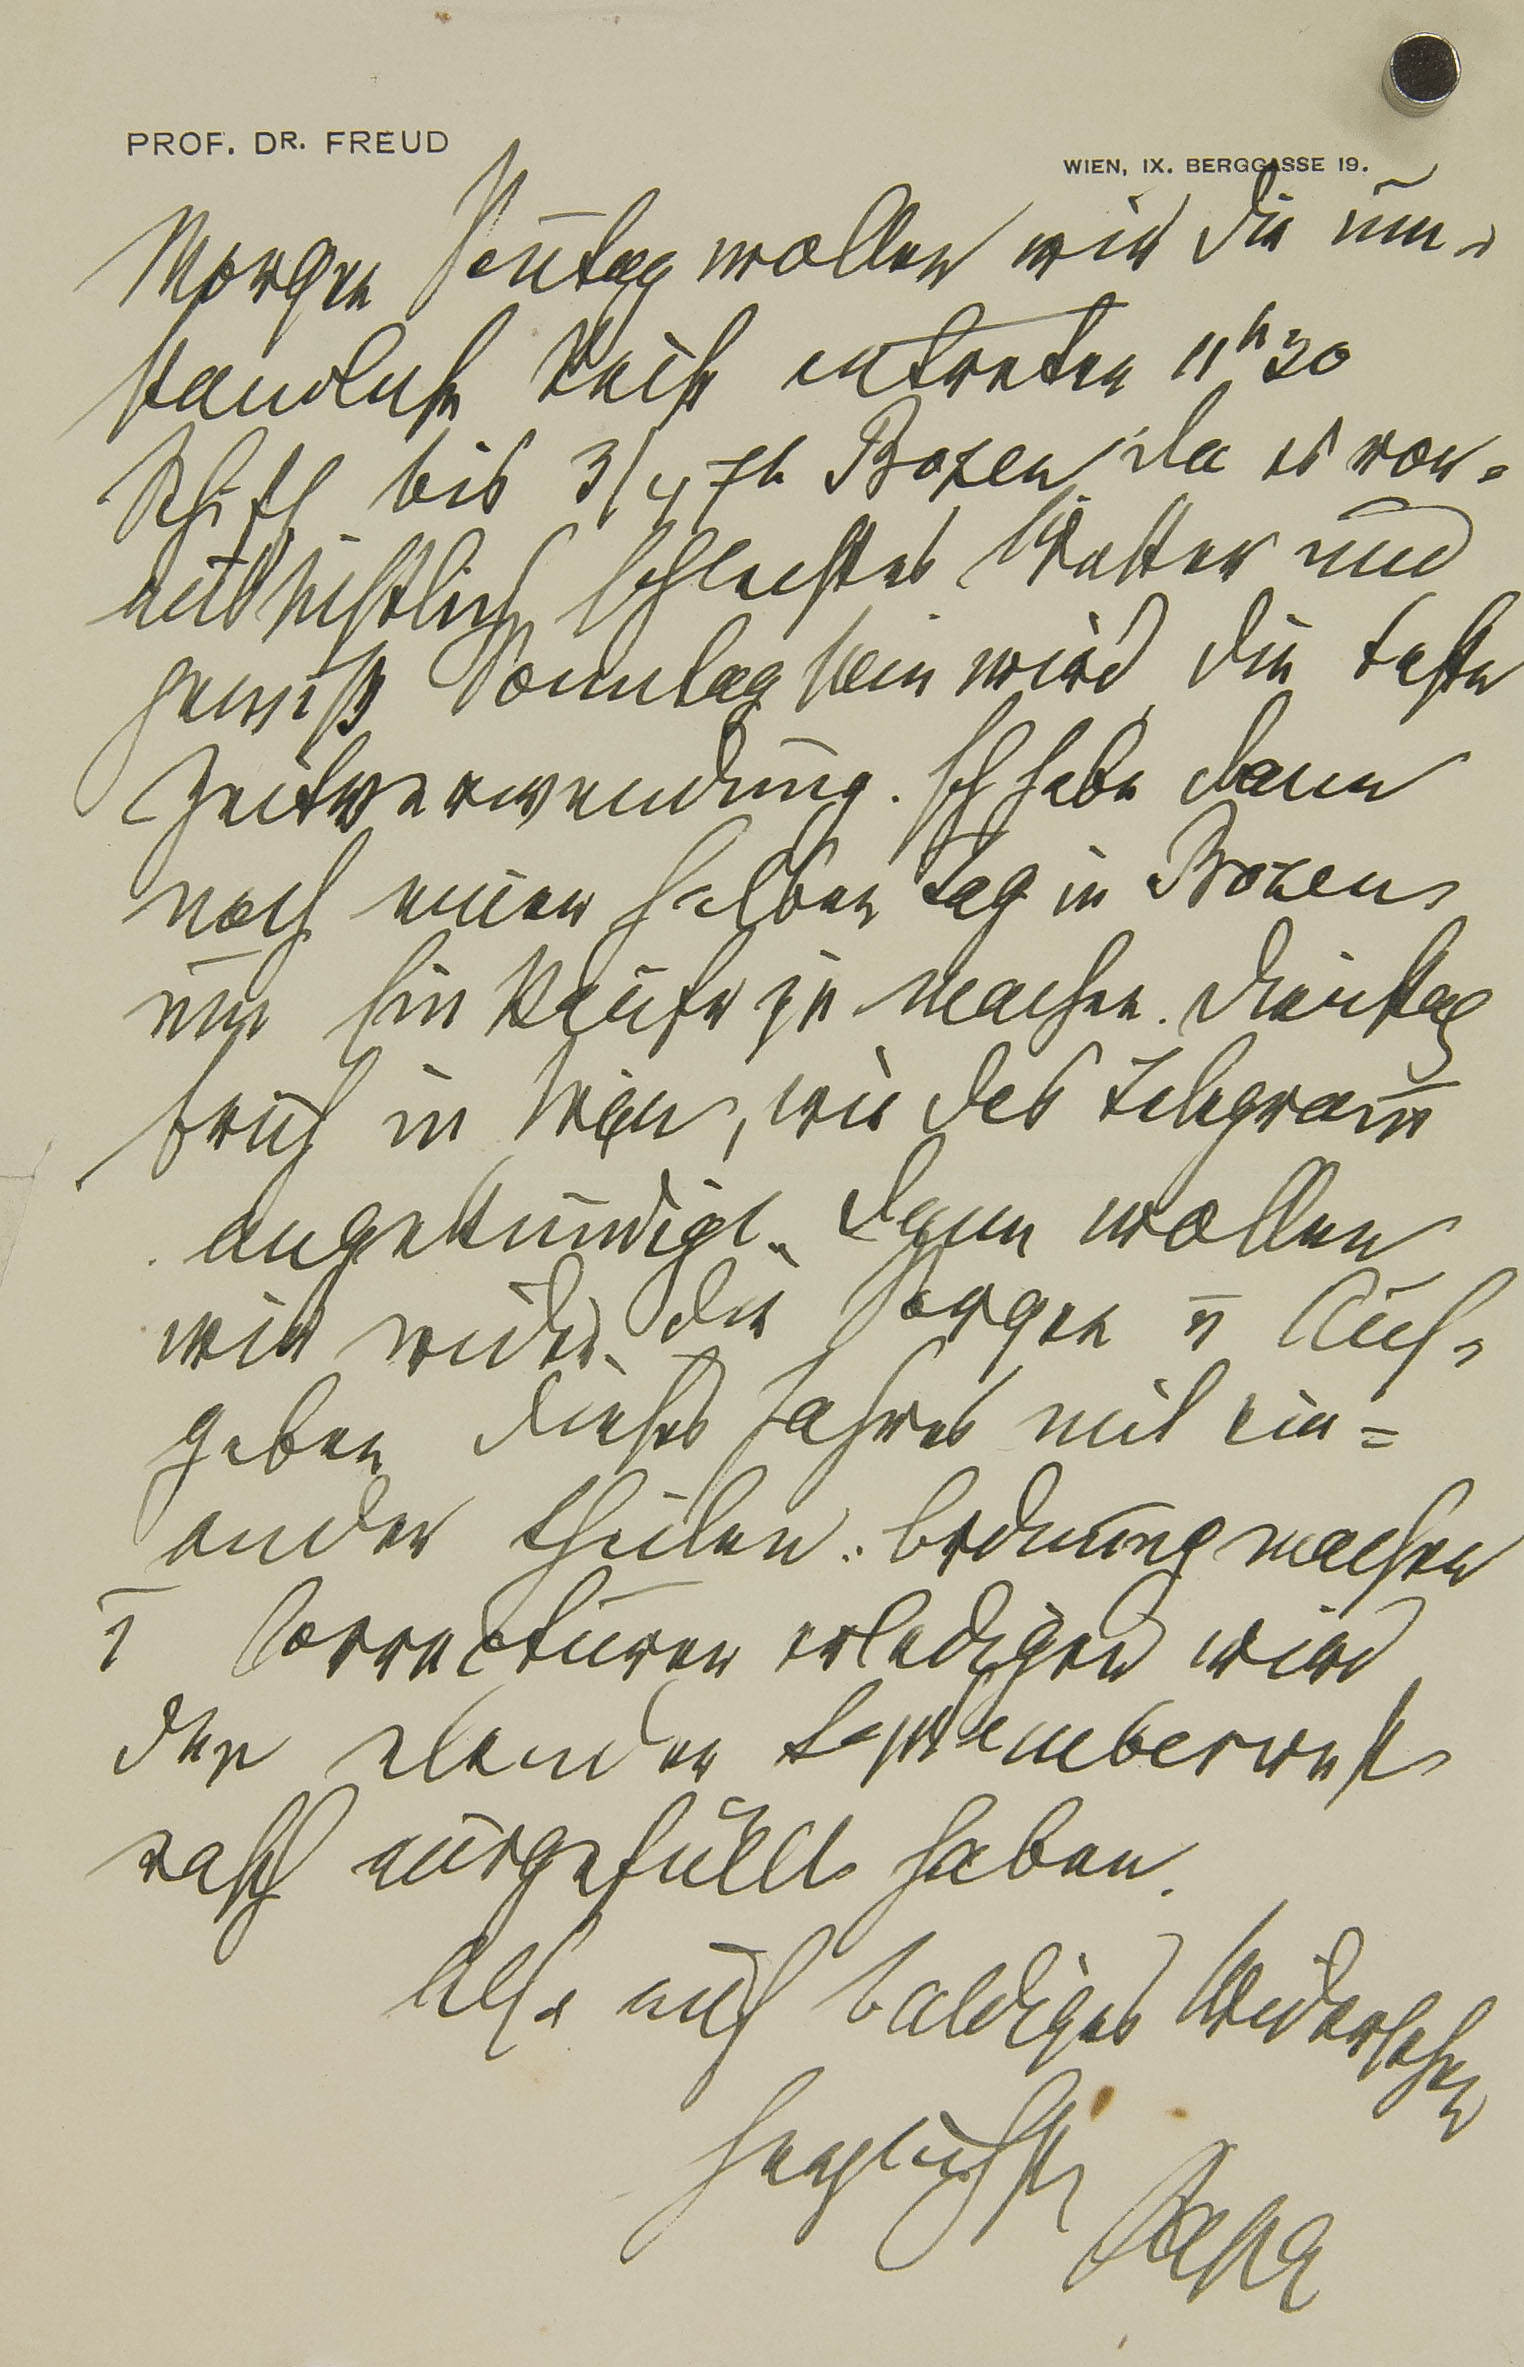 PROF. DR. FREUD
WIEN, IX. BERGGASSE 19.
Morgen Sontag wollen wir die um-
standliche Reise antreten 11h30
Schiff bis 3/4 7h Bozen, da es vor-
aussichtlich schlechtes Wetter und
gewiß Sonntag sein wird, die beste
Zeitverwendung. Ich habe dann
noch einen halben Tag in Bozen
um Einkäufe zu machen. Dienstag
früh in Wien, wie das Telegram̅
angekündigt. Dann wollen
wir wieder die Sorgen u Auf-
gaben dieses Jahres mit ein=
ander theilen. Ordnung machen
u Correcturen erledigen wird
den elenden Septemberrest
rasch ausgefüllt haben.
Also auf baldiges Wiedersehen
herzlichst
Papa